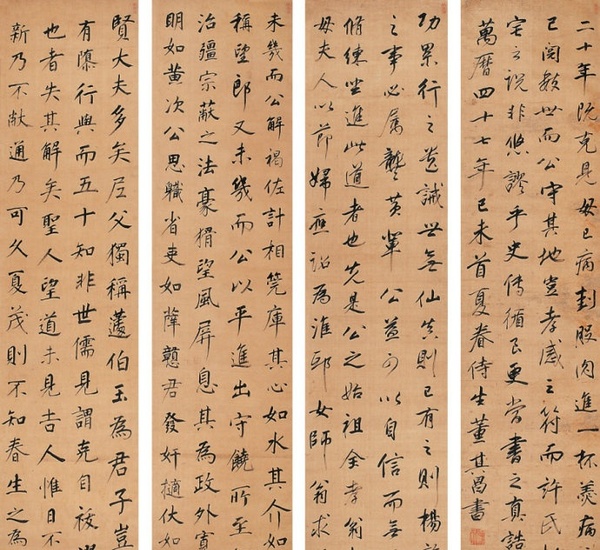 賢大夫多矣尼父獨稱蘧伯玉為君子豈
有隳行與而五十知非世儒見謂克自祓
也者失其解矣聖人望道未見告人惟日不
新乃不敝通乃可久夏茂則不知春生之為
未幾而公解褐佐計相筦庫其心如水其介如
稱望郎又未幾而公以平進出守饒所至
治彊宗蔽之法豪猾望風屏息其為政外寬
明如黃次公思職省吏如薛戇君發奸擿伏如
功累行之茲誠世無仙真則已有之則楊
之事必属龔黃輩公益可以自信而無
脩煉坐進此道者也先是公之始祖全孝翁
母夫人以節婦應詔為淮邸女師翁求
二十年既克見母已病刲股肉進一杯羹病
已閱數世而公守其地豈孝感之符而許氏
宅之說非悠謬乎史傳循良更嘗書之真誥
萬曆四十七年己未首夏眷侍生董其昌書